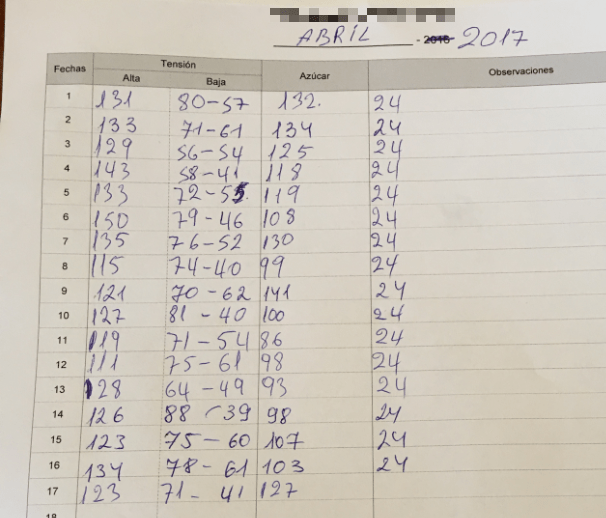 ABRÍL - 2016 2017
Fechas Tensión Azúcar Observaciones
Alta Baja
1 131 80-57 132. 24
2 133 71-61 134 24
3 129 56-54 125 24
4 143 58-41 118 24
5 133 72-55 119 24
6 150 79-46 108 24
7 135 76-52 130 24
8 115 74-40 99 24
9 121 70-62 141 24
10 127 81-40 100 24
11 119 71-54 86 24
12 111 75-61 98 24
13 128 64-49 93 24
14 126 88-39 98 24
15 123 75-60 107 24
16 134 78-61 103 24
17 123 71-41 127
18